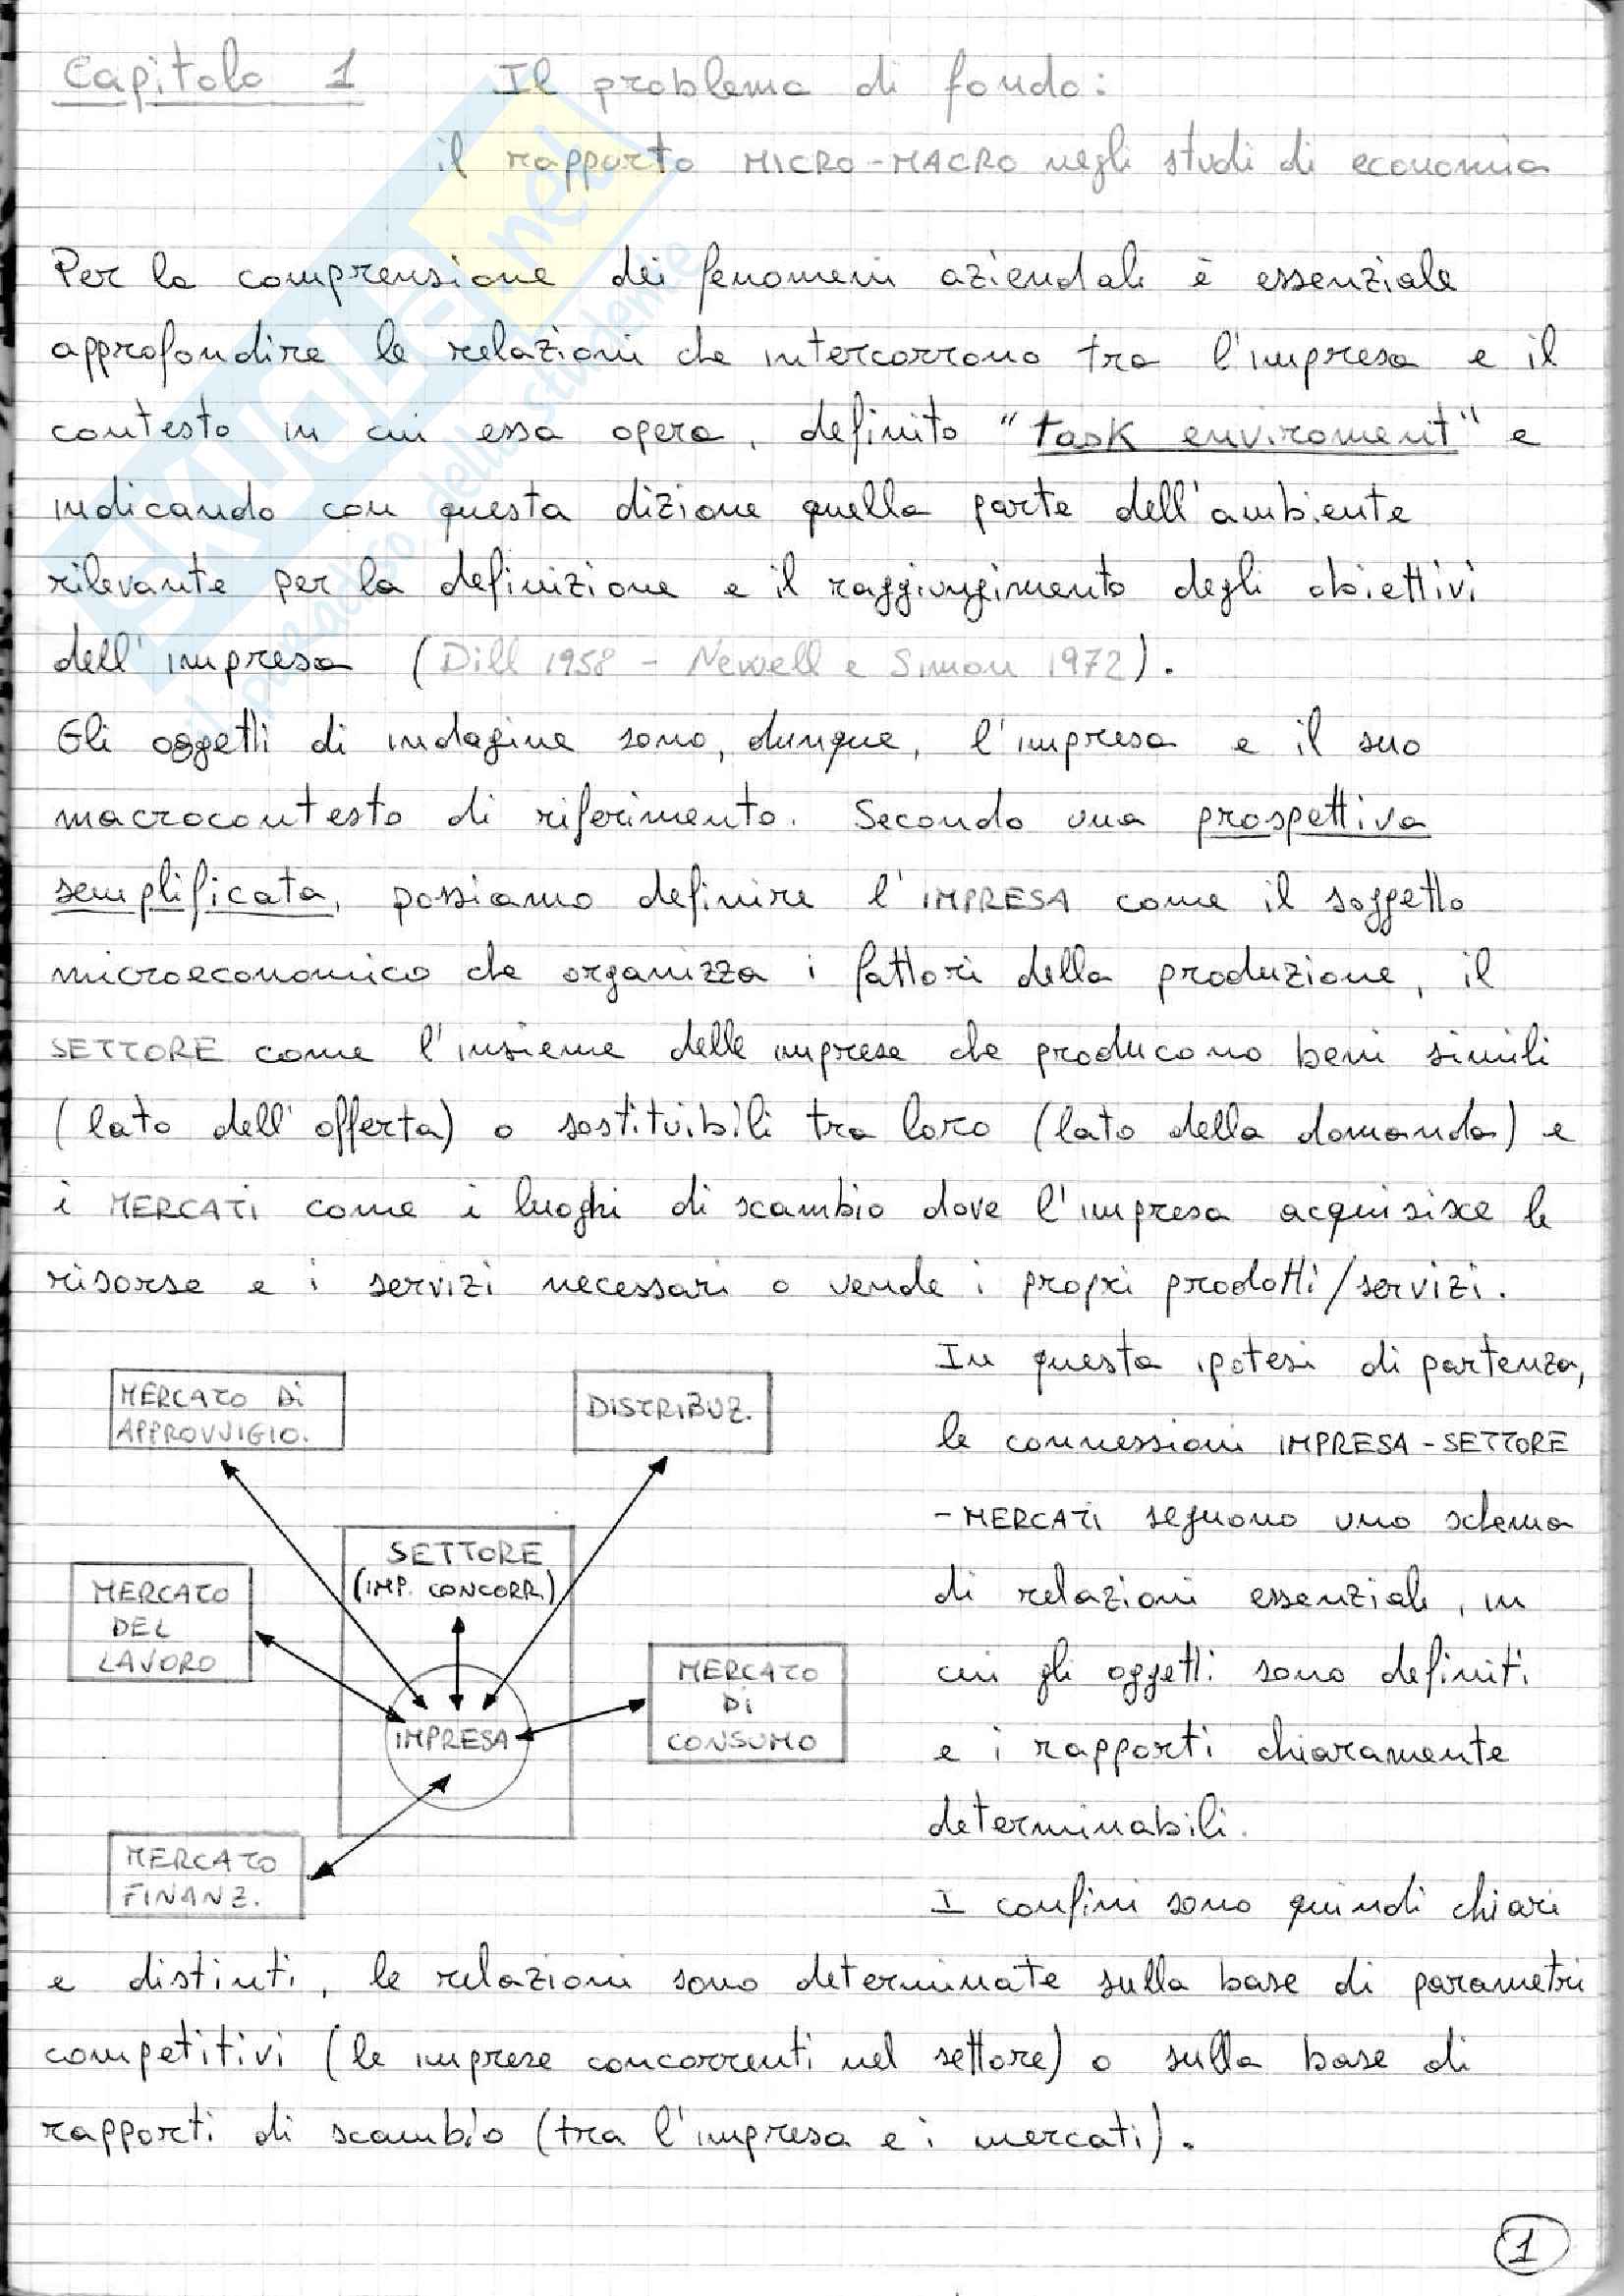 Capitolo 1 Il problema di fondo:
il rapporto MICRO-MACRO negli studi di economia
Per la comprensione dei fenomeni aziendali è essenziale
approfondire le relazioni che intercorrono tra l'impresa e il
contesto in cui essa opera, definito "task enviroment" e
indicando con questa dizione quella parte dell'ambiente
rilevante per la definizione e il raggiungimento degli obiettivi
dell'impresa (Dill 1958 - Newell e Simon 1972).
Gli oggetti di indagine sono, dunque, l'impresa e il suo
macrocontesto di riferimento. Secondo una prospettiva
semplificata, possiamo definire l'IMPRESA come il soggetto
microeconomico che organizza i fattori della produzione, il
SETTORE come l'insieme delle imprese che producono beni simili
(lato dell'offerta) o sostituibili tra loro (lato della domanda) e
i MERCATI come i luoghi di scambio dove l'impresa acquisisce le
risorse e i servizi necessari o vende i propri prodotti/servizi.
In questa ipotesi di partenza,
le connessioni IMPRESA-SETTORE
-MERCATI seguono uno schema
di relazioni essenziale, in
cui gli oggetti sono definiti
e i rapporti chiaramente
determinabili.
I confini sono quindi chiari
MERCATO DI
APPROVVIGIO.
DISTRIBUZ.
SETTORE
(IMP. CONCORR.)
MERCATO
DEL
LAVORO
MERCATO
DI
CONSUMO
IMPRESA
MERCATO
FINANZ.
e distinti, le relazioni sono determinate sulla base di parametri
competitivi (le imprese concorrenti nel settore) o sulla base di
rapporti di scambio (tra l'impresa e i mercati).
1
SKUOLA.net
il paradiso dello studente